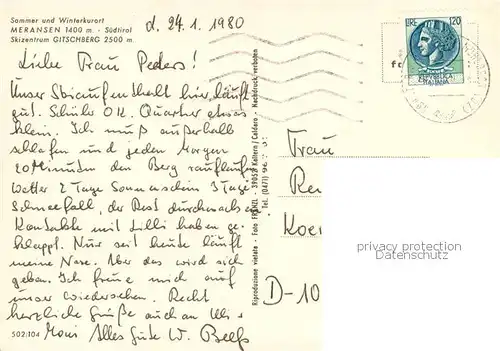 Sommer und Winterkurort
MERANSEN 1400 m. - Südtirol
Skizentrum GITSCHBERG 2500 m.
d. 24.1.1980
Liebe Frau Peders!
Unser Skiaufenthalt hier läuft
gut. Schüler O.K. Quartier etwas
klein. Ich muß außerhalb
schlafen und jeden Morgen
20 Minuten den Berg rauflaufen
Wetter 2 Tage Sonnenschein 3 Tage
Schneefall, der Rest durchwachsen
Kontakte mit Lilli haben ge-
klappt. Nur seit heute läuft
meine Nase. Aber das wird sich
geben. Ich freue mich auf
unser Wiedersehen. Recht
herzliche Grüße auch an
Alles Gute W.
502:104
Riproduzione vietata - Foto - 39052 Kaltern/Caldaro - Nachdruck verboten
Tel. (0471)
LIRE 120
REPVBBLICA
ITALIANA
Frau
Re
Koe
D-10
privacy protection
Datenschutz